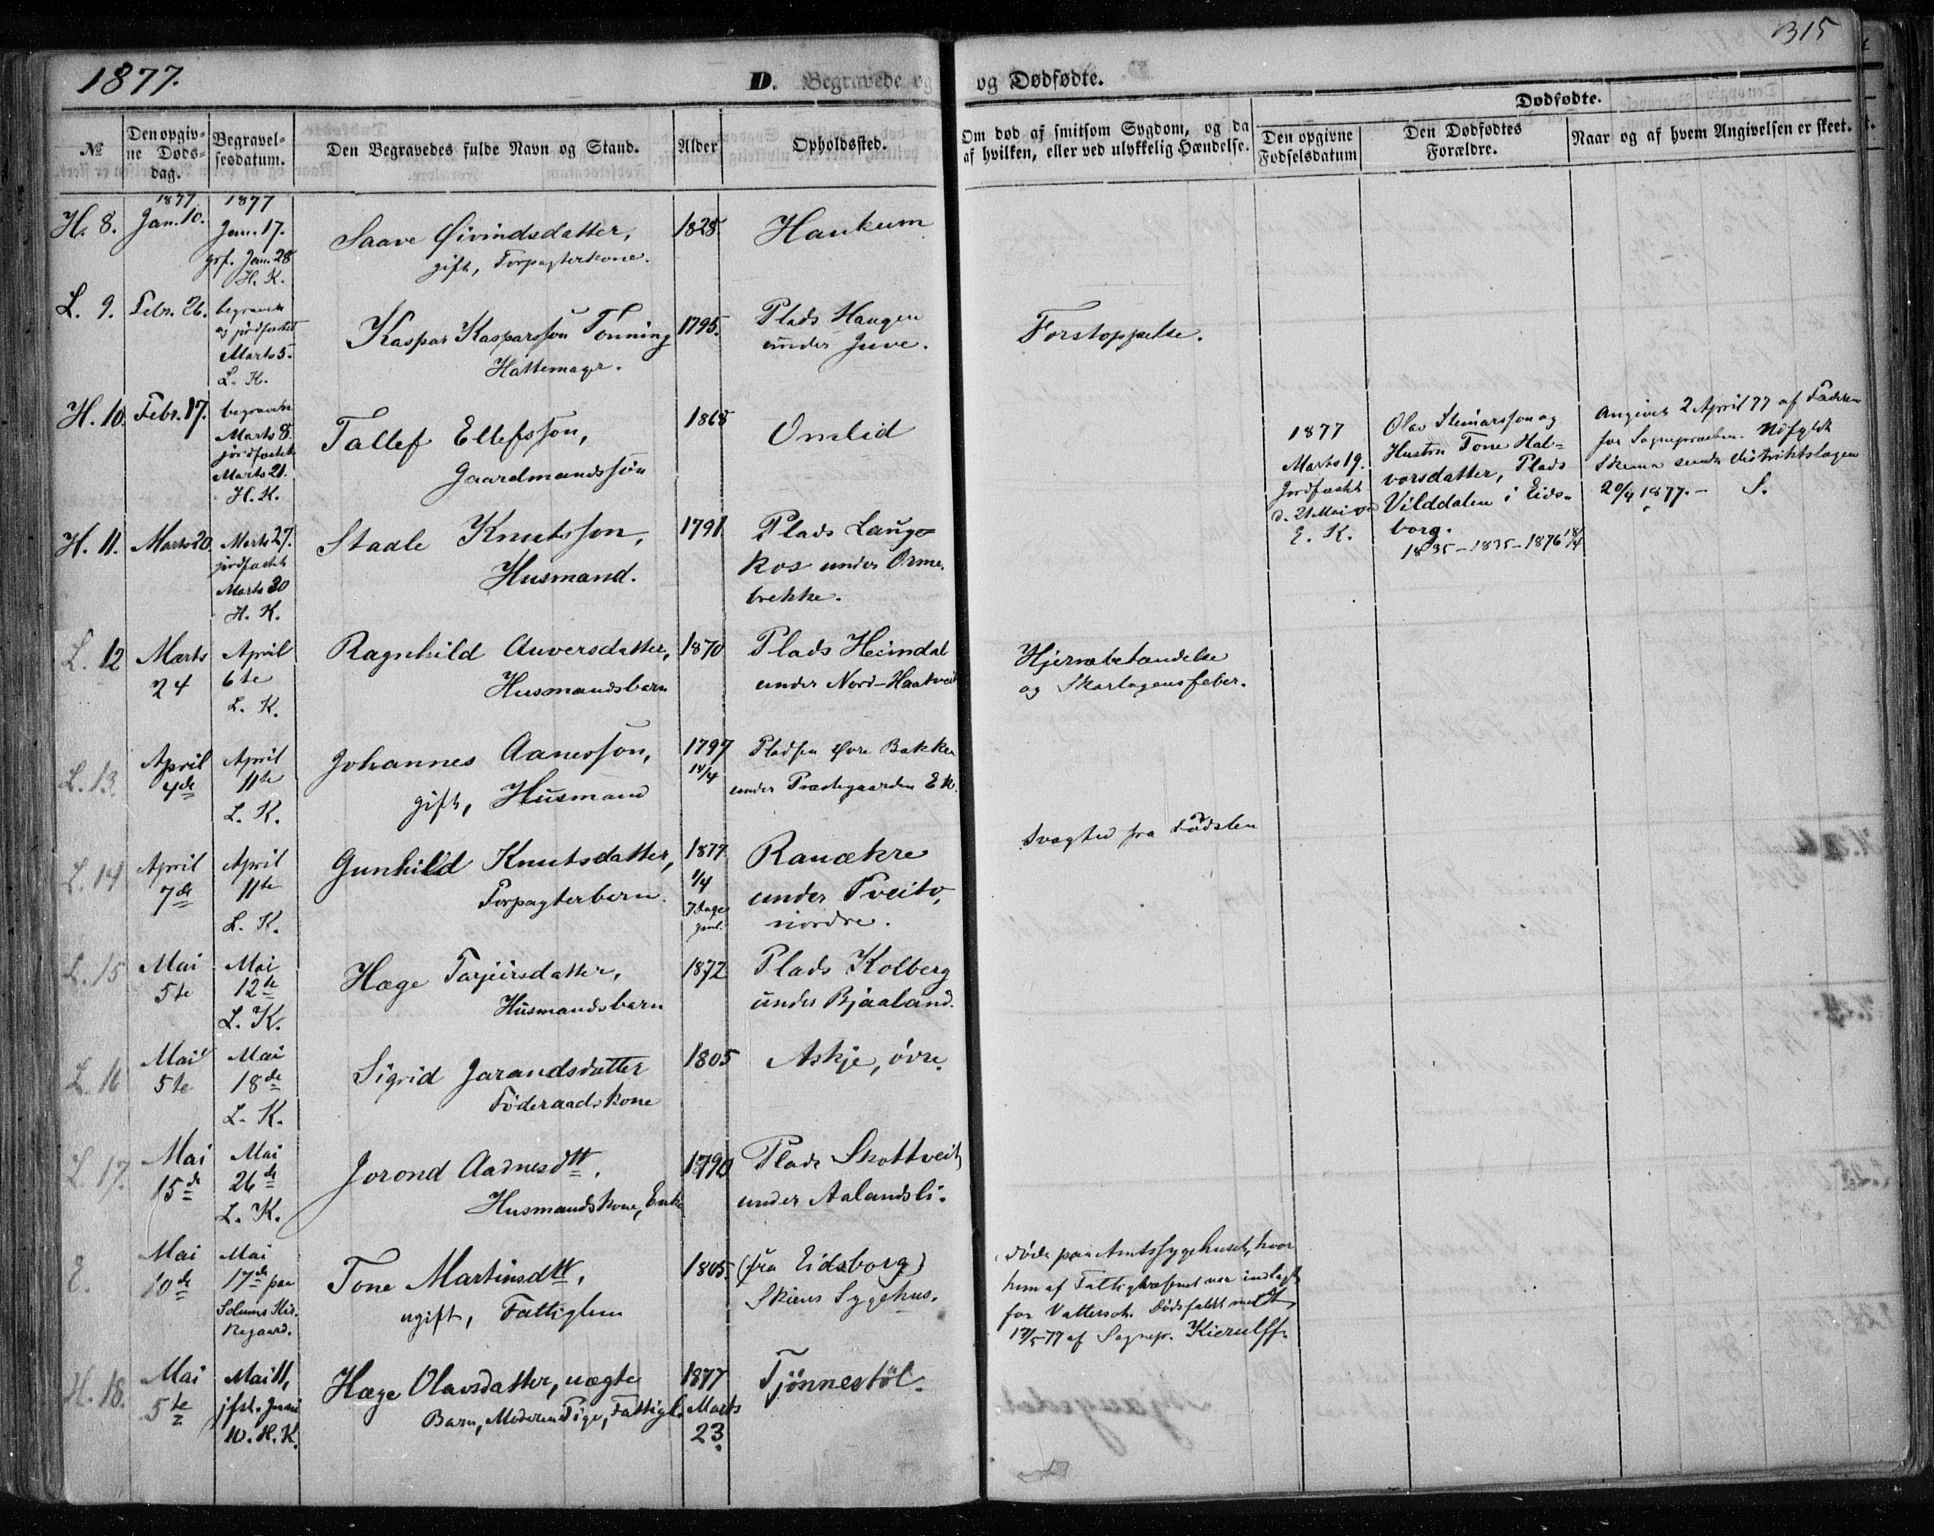 1877.
D. Begravede og
og Dødfødte.
315
№
Den opgivne Dødsdag.
Begravelsesdatum.
Den Begravedes fulde Navn og Stand.
Alder
Opholdssted.
Om død af smitsom Sygdom, og da
af hvilken, eller ved ulykkelig Hændelse.
Dødfødte.
Den opgivne
Fødselsdatum
Den Dødfødtes
Forældre.
Naar og af hvem Angivelsen er skeet.
H. 8.
1877
Jan. 10.
1877
Jan. 17.
Jan. 28
H. K.
Saave Øivindsdatter,
gift, Forpagterkone.
1828.
Haukum
L. 9.
Febr. 26.
begravet
og jordfæstet
Marts 5.
L. K.
Kaspar Kasparssøn Tonning
Hattemager.
1795.
Plads Haugen
under Juve.
Forstoppelse.
H. 10.
Febr. 17.
begravet
Marts 8.
jordfæstet
Marts 21.
H. K.
Tallef Ellefssøn,
Gaardmandssøn
1868
Omlid
1877
Marts 19.
Jordfæstet
d. 21 Mai ved
E. K.
Olav Steinarssøn og
Hustru Tone Hal-
vorsdatter, Plads
Vilddalen i Eids-
borg.
1835 – 1835 – 1876 18/4
Angivet 2 April 77 af Faderen
for Sognepræsten. Udfyldt
Skema sendt Distriktslægen
20/4 1877. – S.
H. 11.
Marts 20
Marts 27.
jordfæstet
Marts 30
H. K.
Staale Knutssøn,
Husmand.
1791
Plads Laugo-
kos under Orme-
brekke.
L. 12
Marts
24
April
6te
L. K.
Ragnhild Anversdatter,
Husmandsbarn
1870
Plads Heimdal
under Nord-Haatveit
Hjernebetændelse
og Skarlagensfeber.
L. 13.
April
4de
April
11te
L. K.
Johannes Aanessøn,
gift, Husmand
1797
14/4
Pladsen Øvre Bakken
under Præstegaarden Ek.
L. 14
April
7de
April
11te
L. K.
Gunhild Knutsdatter,
Forpagterbarn.
1877
1/4
7 Dage
gml.
Rauækre
under Tveito,
nordre.
Svaghed fra Fødslen
L. 15
Mai
5te
Mai
12te
L. K.
Hæge Tarjeirsdatter,
Husmandsbarn
1872
Plads Kolberg
under Bjaaland.
L. 16
Mai
5te
Mai
18de
L. K.
Sigrid Jarandsdatter
Føderaadskone
1805
Askje, øvre
L. 17.
Mai
15de
Mai
26de
L. K.
Jorond Aadnesdtt.
Husmandskone, Enke
1790
Plads Skottveit,
under Aalandsli.
E.
Mai
10de
Mai
17de paa
Solums Kir-
kegaard.
Tone Martinsdtt,
ugift, Fattiglem
1805.
(fra Eidsborg)
Skiens Sygehus.
døde paa Amtssygehuset, hvor
hun af Fattigvæsenet var indlagt
for Vattersot. Dødsfaldet meldt
17/5 77 af Sognepr. Kierulff.
H. 18.
Mai
5te
Mai 11,
jfst. Juni
10. H. K.
Hæge Olavsdatter, uægte
Barn, Moderen Pige, Fattigl.
1877
Marts
23.
Tjønnestøl.